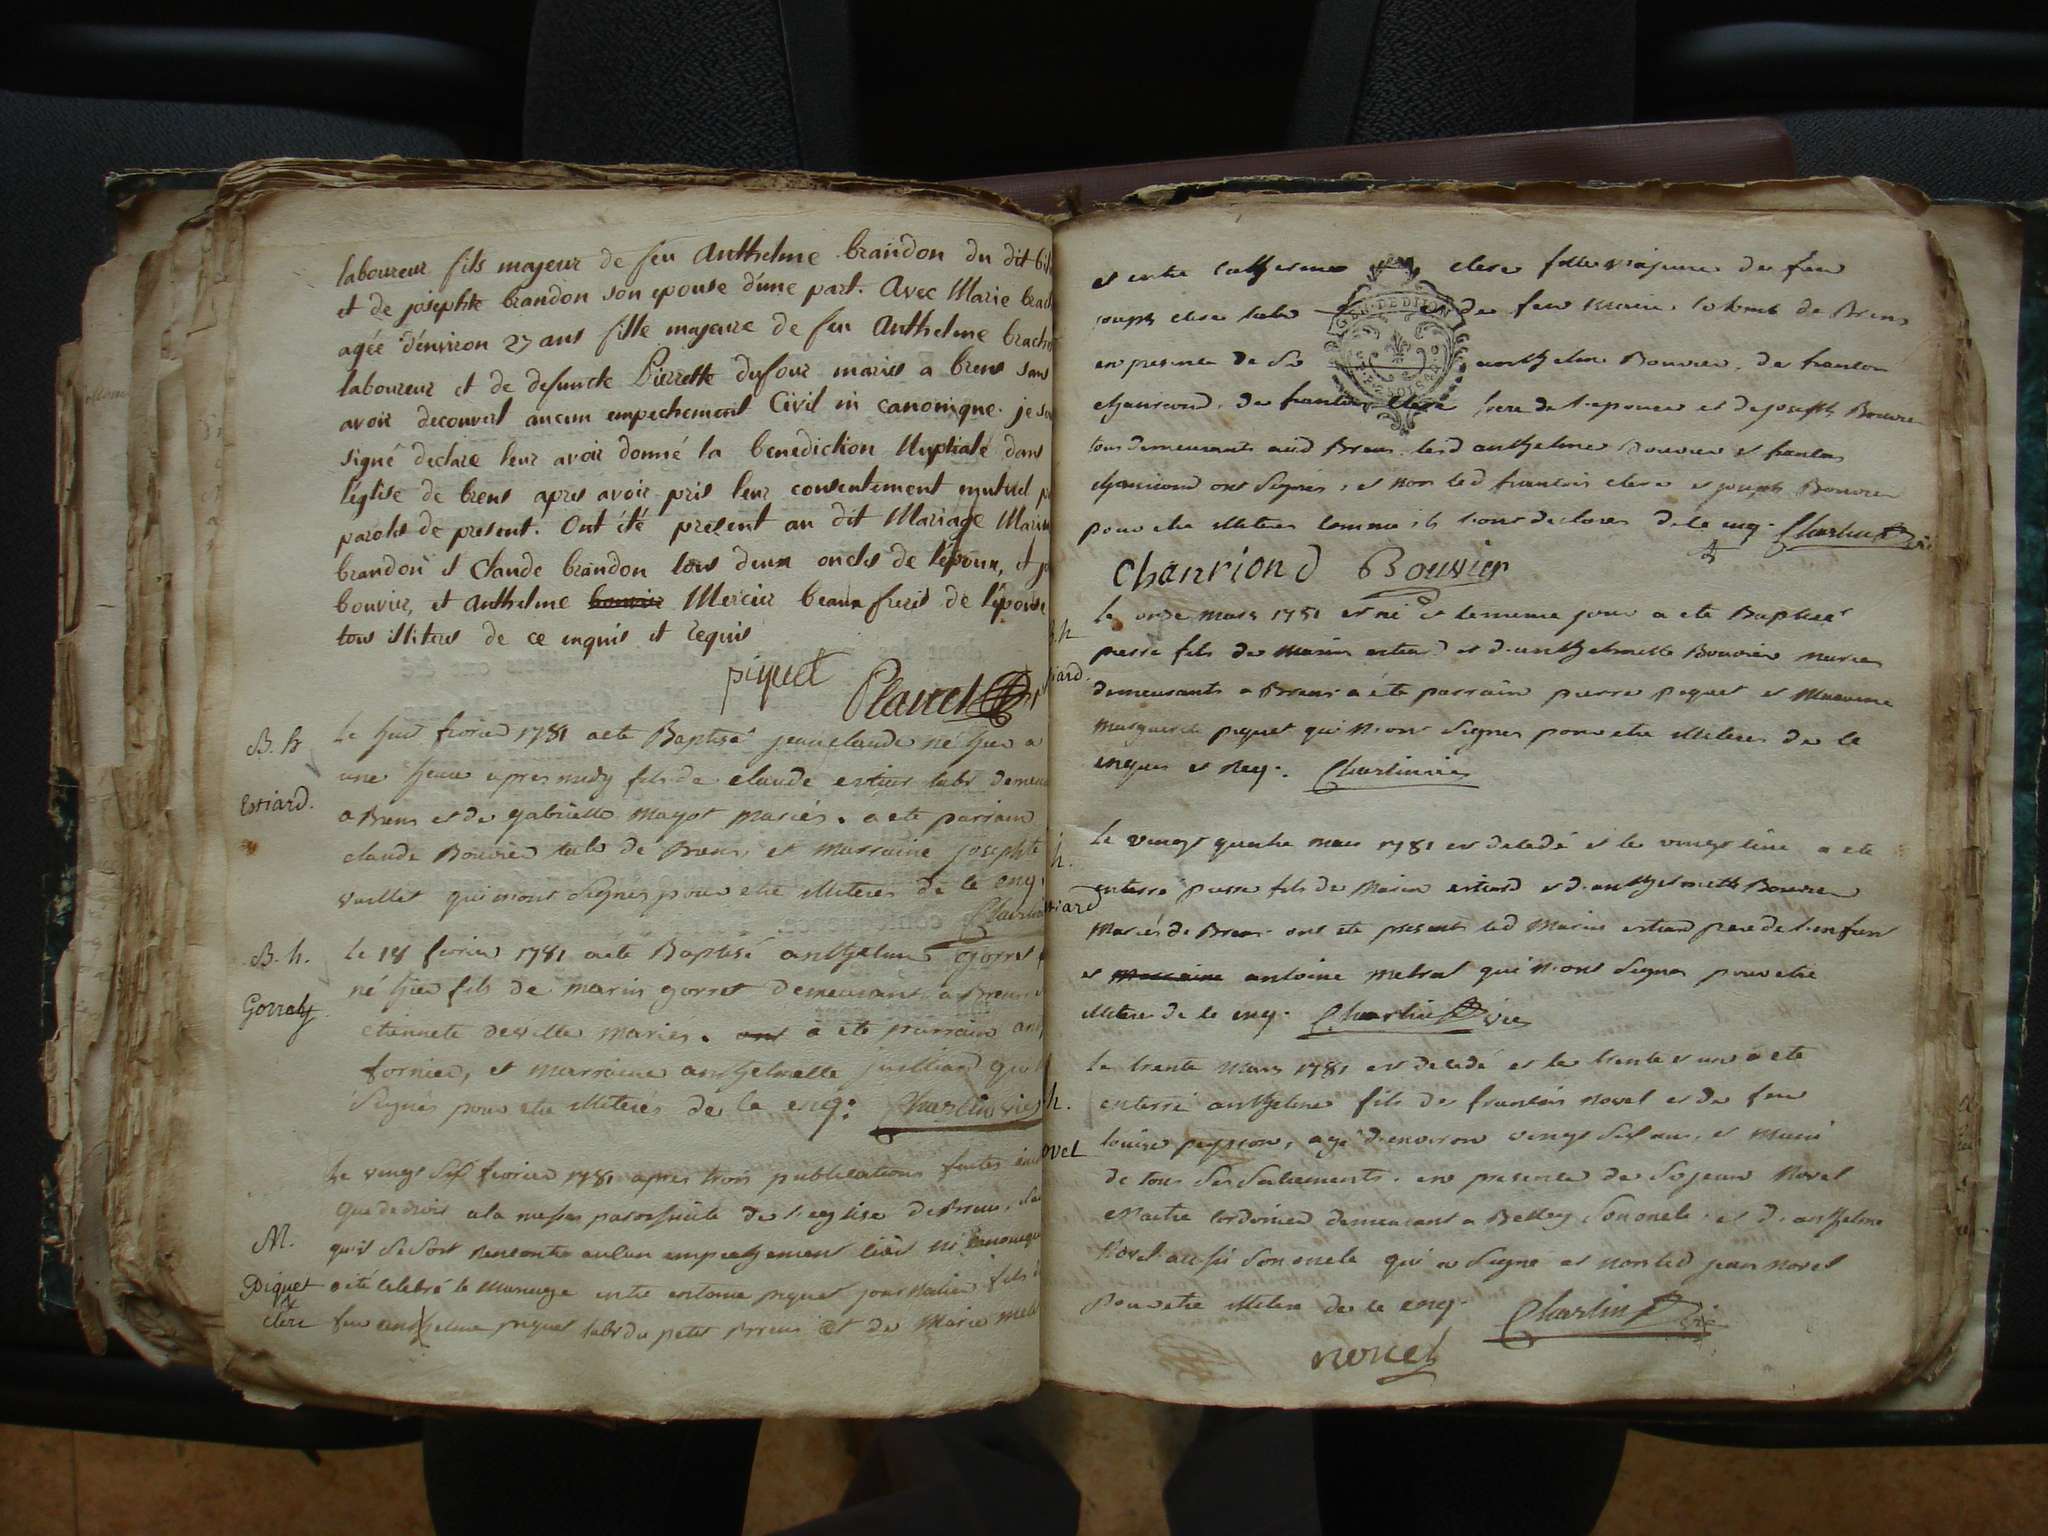 laboureur fils majeur de feu Anthelme brandon du dit
et de josephte brandon son epouse d'une part. Avec Marie
agée d'environ 27 ans fille majeure de feu Anthelme
laboureur et de defuncte Pierrette dufour mariés a brens sans
avoir decouvert aucun empechement Civil ni canonique. je
signé declare leur avoir donné la benediction Nuptiale dans
l'église de brens apres avoir pris leur consentement mutuel
paroles de present. Ont été present au dit Mariage
brandon et Claude brandon tous deux oncles de l'époux, et
bouvier, et Anthelme bouvier Mercier beaux freres de l'épouse
tous illiteres de ce enquis et requis
piquet
B. h
Estiard.
Le huit fevrier 1781 a ete Baptisé jean claude né hier a
une heure apres midy fils de claude estiard labr
a Brens et de gabrielle Mayot mariés. a ete parrain
claude Bouvier labr de Brens et marraine josephte
vuillet qui n'ont signés pour etre illiteres de ce enq.
B. h.
Le 18 fevrier 1781 a ete Baptisé anthelme gorret
né hier fils de marin gorret demeurant a Brens
etiennete deville mariés. ont a ete parrain
fornier, et marraine anthelmette juilliard
signés pour etre illiteres de ce enq. Charlin vic
M.
Piquet
&
clere
Le vingt six fevrier 1781 apres trois publications faites
que de droit a la messe paroissiale de l'eglise de Brens,
qu'il se soit rencontré aucun empechement civil ni canonique
a été celebré le Mariage entre antoine piquet journalier fils
feu anthelme piquet labr du petit Brens et de Marie
et entre Catherine clere fille majeure de feu
joseph clere labr de feu Colomb de Brens
en presence de Sr anthelme Bouvier, de francois
chanriond, de francois clere frere de l'epouse et de joseph Bouvier
tous demeurants aud Brens. lesd anthelme Bouvier et francois
chanriond ont signés, et non led francois clere et joseph Bouvier
pour etre illiteres comme ils l'ont declarés de ce enq. Charlin vic
Chanriond Bouvier
Le onze mars 1781 est né et le meme jour a ete Baptisé
pierre fils de marin estiard et d'anthelmette Bouvier mariés
demeurants a Brens. a été parrain pierre piquet et Marraine
Marguerite piquet qui n'ont signés pour etre illiteres de ce
enquis et req. Charlin vic
Le vingt quatre mars 1781 est decedé et le vingt cinq a ete
enterré pierre fils de Marin estiard et d'anthelmette Bouvier
Mariés de Brens. ont ete presents led Marin estiard pere de l'enfant
et marraine antoine metral qui n'ont signés pour etre
illiteres de ce enq. Charlin vic
Le trente mars 1781 est decedé et le trente et un a ete
enterré anthelme fils de francois novel et de feu
louise peysson, agé d'environ vingt six ans, et muni
de tous ses sacrements. en presence de Sr jean Novel
Maitre cordonier demeurant a Belley son oncle. et d'anthelme
Novel aussi son oncle qui a signé et non led jean novel
pour etre illitere de ce enq. Charlin vic
novel